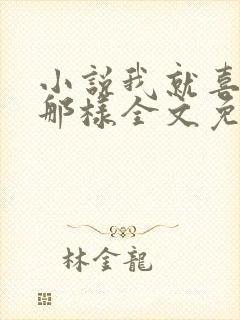 小說我就喜
那樣全文免
林金龍